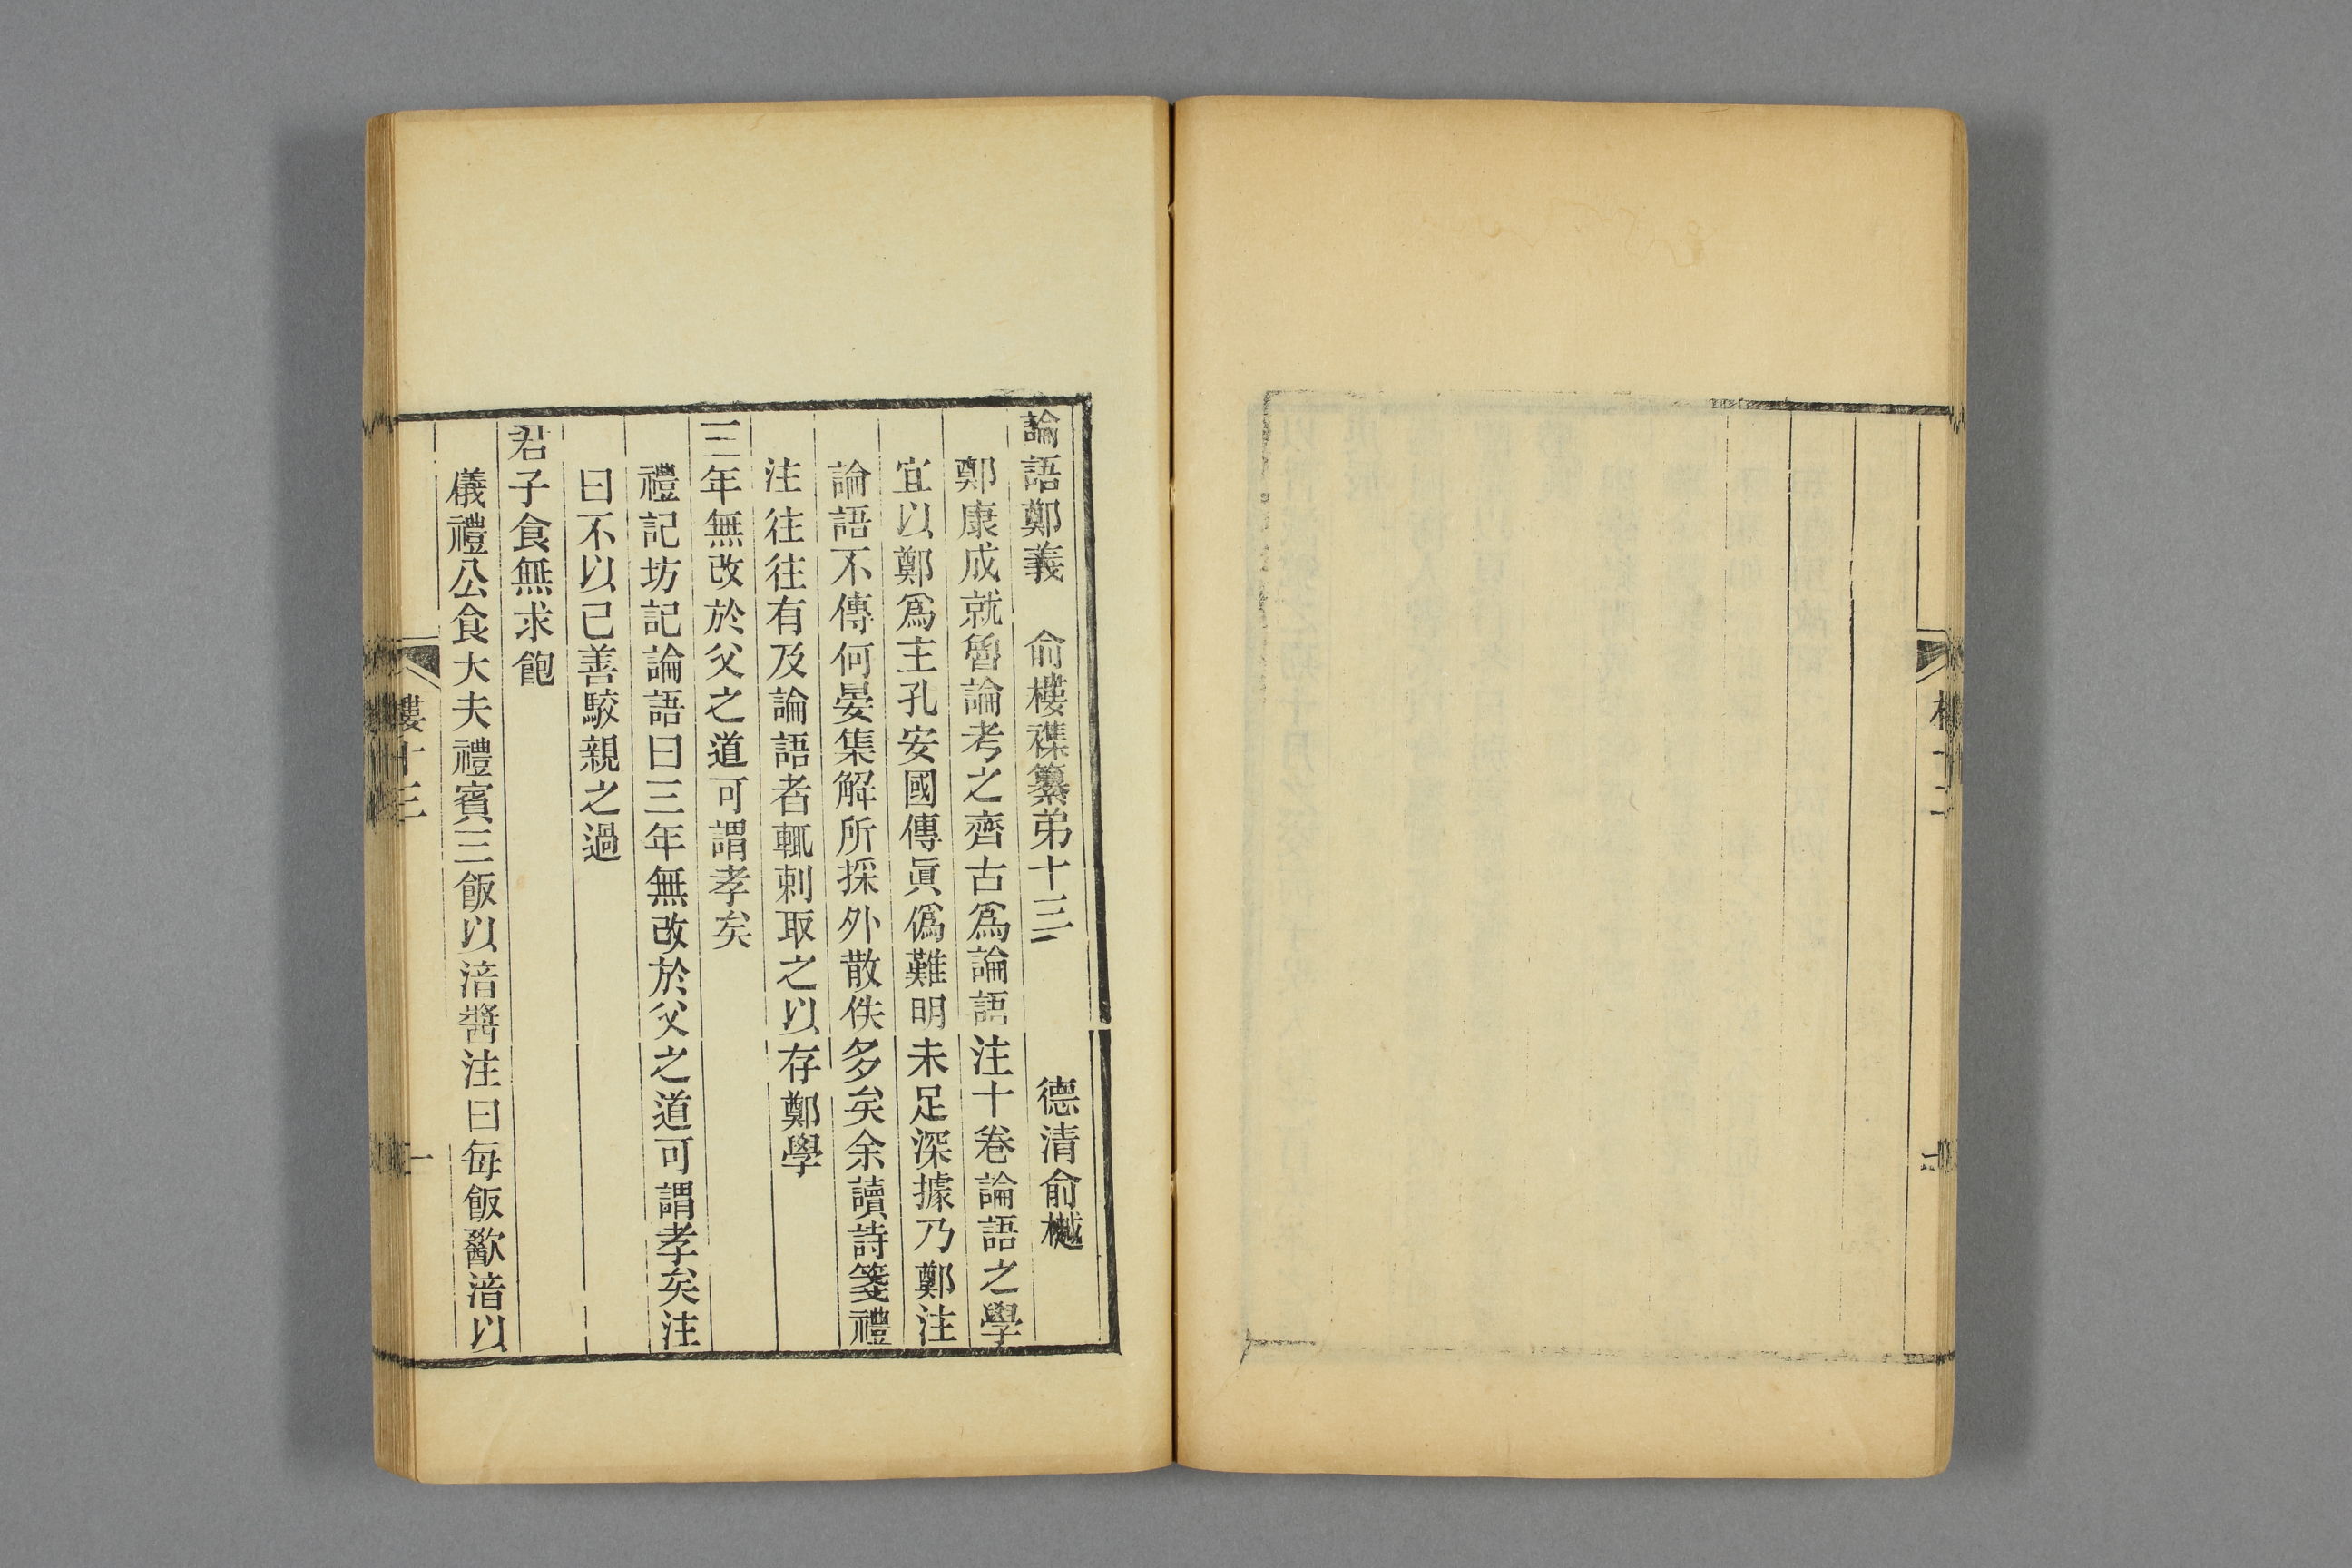 論語鄭義　俞樓襍纂弟十三　　　德清俞樾
鄭康成就魯論考之齊古爲論語注十卷論語之學
宜以鄭爲主孔安國傳眞僞難明未足深據乃鄭注
論語不傳何晏集解所採外散佚多矣余讀詩箋禮
注往往有及論語者輒刺取之以存鄭學
三年無改於父之道可謂孝矣
禮記坊記論語曰三年無改於父之道可謂孝矣注
曰不以己善駮親之過
君子食無求飽
儀禮公食大夫禮賓三飯以湆醬注曰每飯歠湆以
樓十三
一